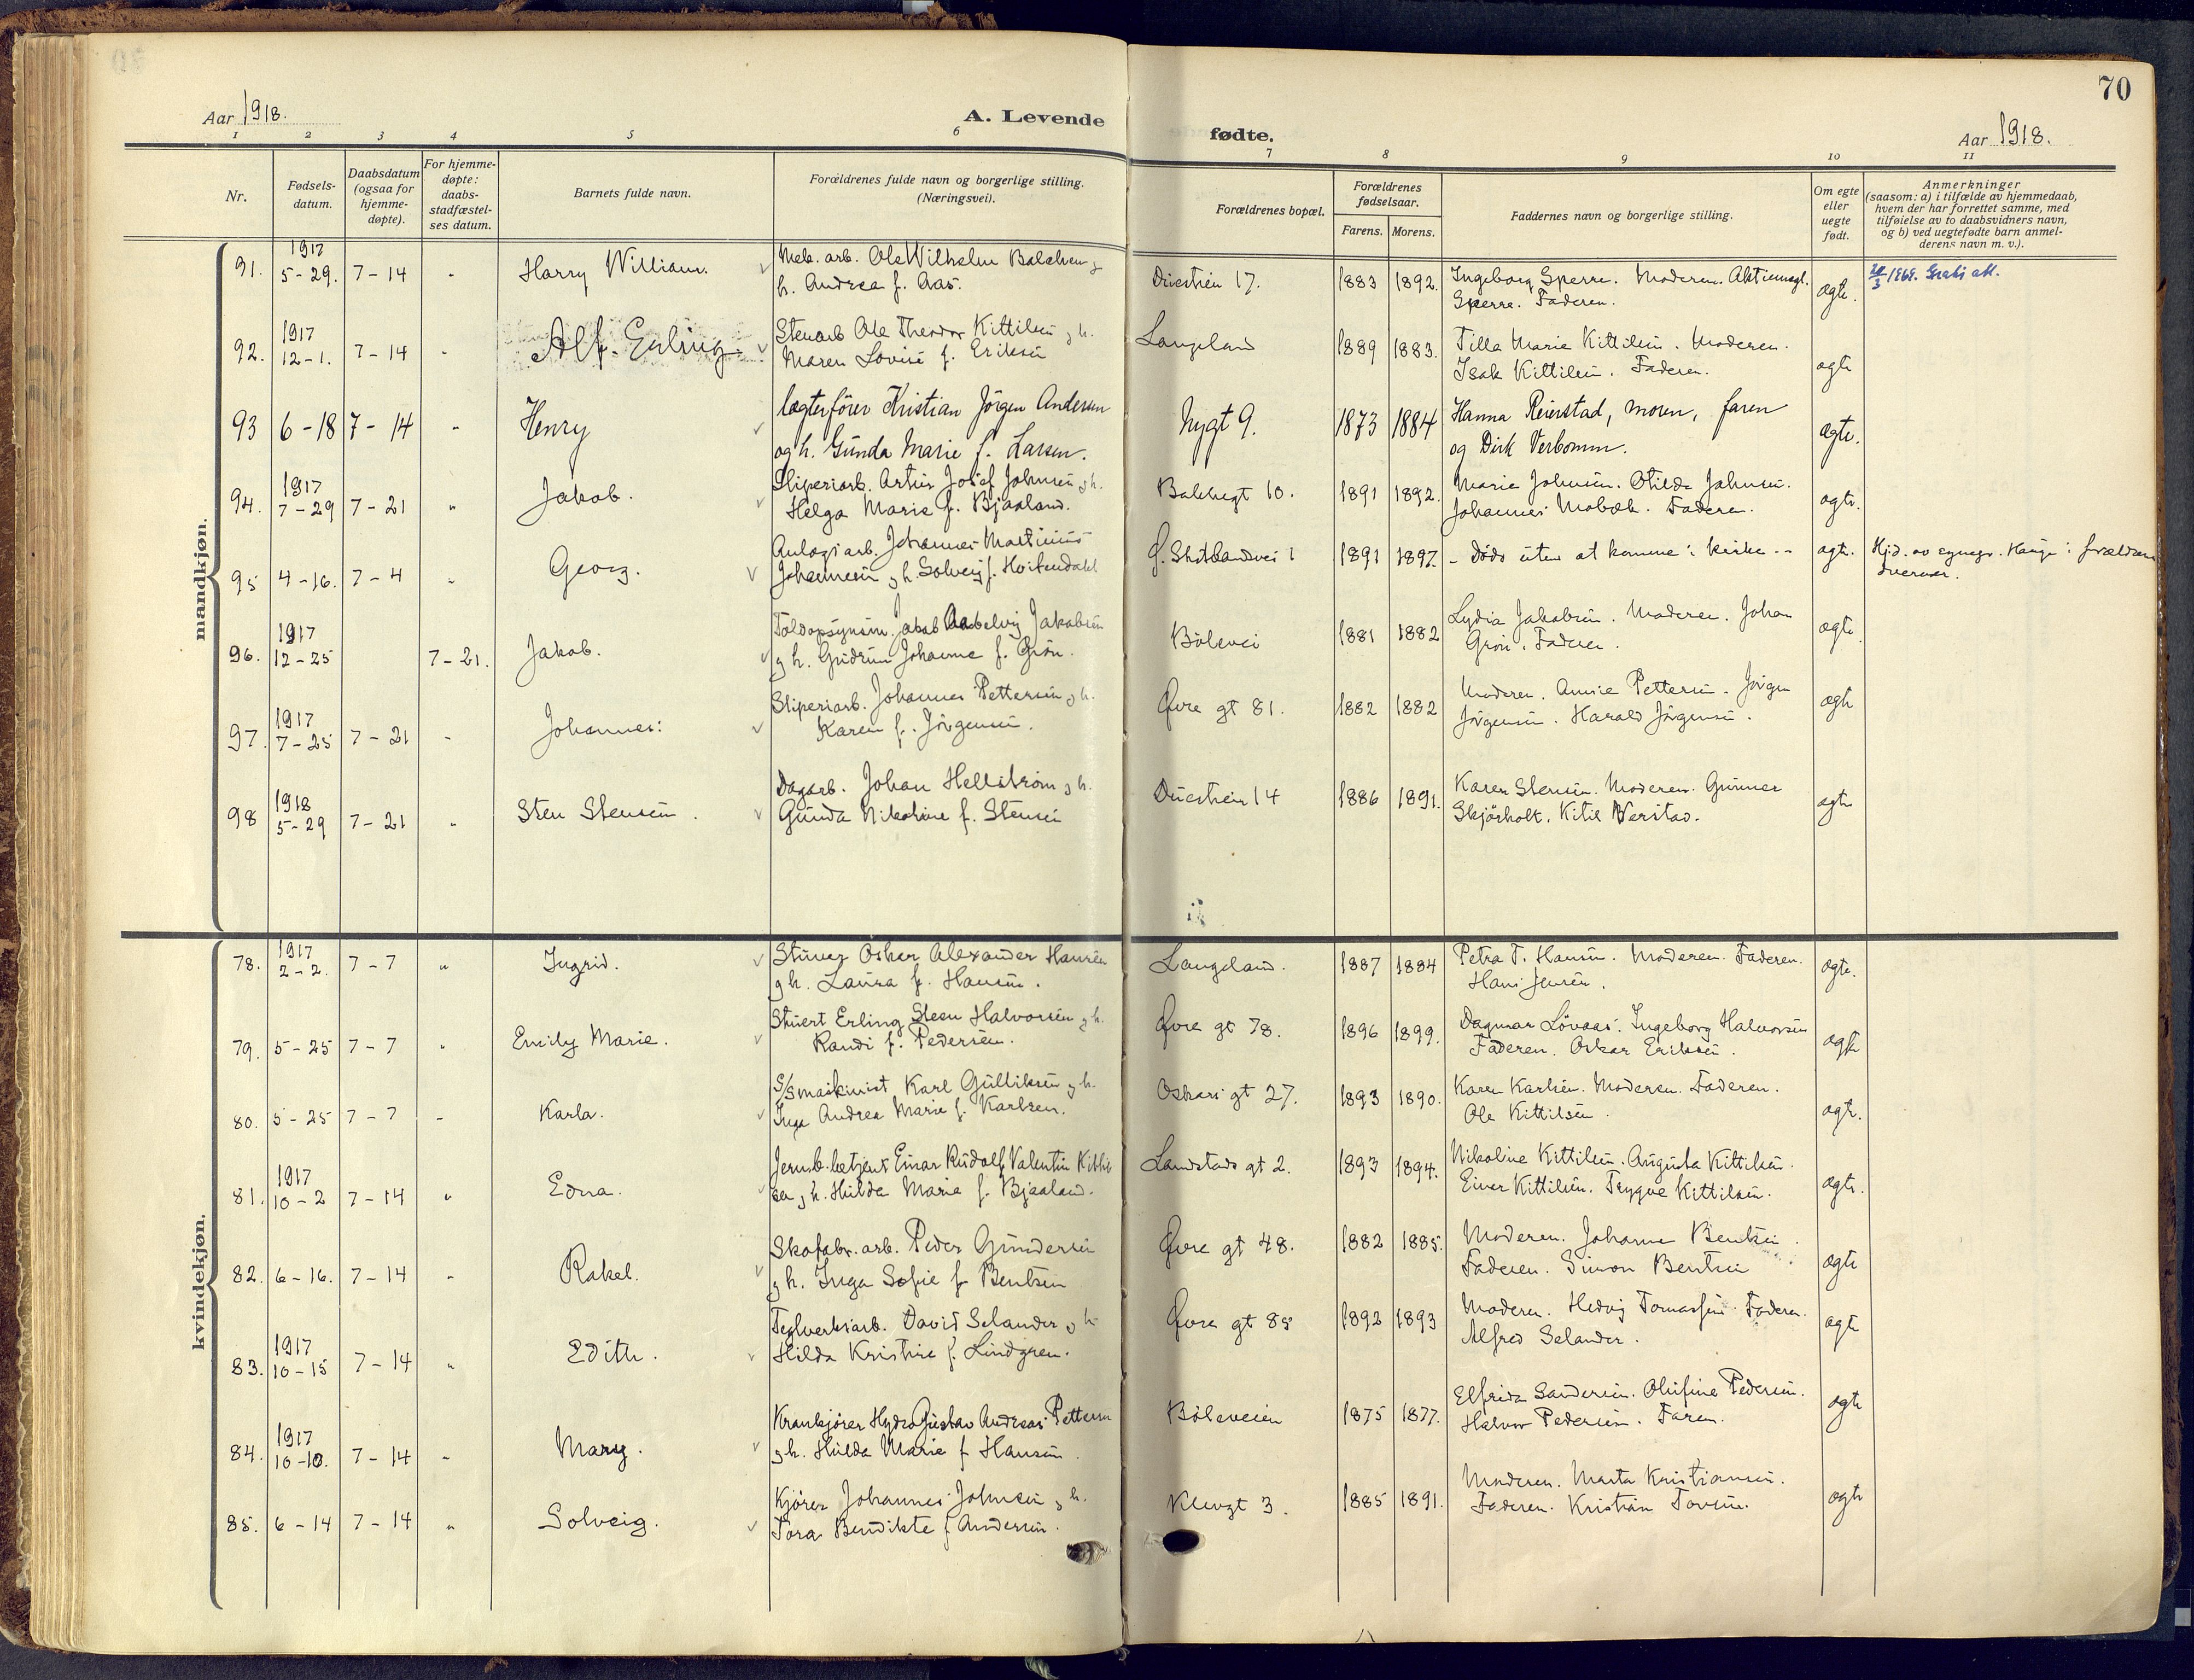 70
Aar 1918.
A. Levende
fødte.
Aar 1918.
1 2 3 4 5 6 7 8 9 10 11
Nr.
Fødsels-
datum.
Daabsdatum
(ogsaa for
hjemme-
døpte).
For hjemme-
døpte:
daabs-
stadfæstel-
ses datum.
Barnets fulde navn.
Forældrenes fulde navn og borgerlige stilling.
(Næringsvei).
Forældrenes bopæl.
Forældrenes
fødselsaar.
Farens. Morens.
Faddernes navn og borgerlige stilling.
Om egte
eller
uegte
født.
Anmerkninger
(saasom: a) i tilfælde av hjemmedaab,
hvem der har forrettet samme, med
tilføielse av to daabsvidners navn,
og b) ved uegtefødte barn anmel-
derens navn m. v.).
mandkjøn.
1917
91. 5-29. 7-14 " Harry William. Mek. arb. Ole Wilhelm Balchen g
h. Andrea f. Aas.
Duestien 17. 1883 1892. Ingeborg Sperre. Moderen.
Sperre. Faderen. ægte.
1917
92. 12-1. 7-14 " Alf Erling Stenarb Ole Theodor Kittilsen g h.
Maren Lovise f. Eriksen
Langeland 1889 1883. Tilla Marie Kittilsen. Moderen.
Isak Kittilsen. Faderen. ægte
93 6-18 7-14 " Henry lægterfører Kristian Jörgen Andersen
og h. Gunda Marie f. Larsen.
Nygt 9. 1873 1884 Hanna Reierstad, moren, faren
og Dirk Verbomm. ægte.
1917
94. 7-29 7-21 " Jakob. Sliperiarb. Artur Josef Johnsen g h.
Helga Marie f. Bjaaland.
Bakkegt 10. 1891 1892. Marie Johnsen. Otilde Johnsen.
Johannes Mobæk. Faderen. ægte.
95 4-16. 7-4 " Georg. Anlægsarb. Johannes Martinius
Johannesen g h. Solveig f. Hoitendahl
1891 1897. - Døde uten at komme i kirke - ægte.
1917
96. 12-25 7-21. Jakob. Toldopsynsm. Jakob Jakobsen
g h. Gudrun Johanne f. Grön.
Bölevei 1881 1882 Lydia Jakobsen. Moderen. Johan
Grön. Faderen. ægte.
1917
97. 7-25 7-21 " Johannes: Sliperiarb. Johannes Pettersen g h.
Karen f. Jörgensen.
Øvre gt 81. 1882 1882 Moderen. Annie Pettersen. Jörgen
Jörgensen. Harald Jörgensen. ægte
1918
98 5-29 7-21 " Sten Stensen. Dagarb. Johan Hellström g h.
Gunda Nikoline f. Stensen
Duestien 14 1886 1891. Karen Stensen. Moderen. Gunner
Skjörholt. Kitil Verstad. ægte
kvindekjøn.
1917
78. 2-2. 7-7 " Ingrid. Stuver Oskar Alexander Hansen
g h. Laura f. Hansen.
Langeland. 1887 1884 Petra T. Hansen. Moderen. Faderen.
Hans Jensen. ægte.
79. 5-25 7-7 " Emily Marie. Stuert Erling Steen Halvorsen g h.
Randi f. Pedersen.
Øvre gt 78. 1896 1899. Dagmar Lövaas. Ingeborg Halvorsen
Faderen. Oskar Eriksen. ægte
80. 5-25 7-7 " Karla. S/S maskinist Karl Gulliksen g h.
Inga Andrea Marie f. Karlsen.
Oskars gt 27. 1893 1890. Karen Karlsen. Moderen. Faderen.
Ole Kittilsen. ægte.
1917
81. 10-2 7-14 " Edna. Jernb.betjent Einar Rudolf Valentin Kittil
sen g h. Hilda Marie f. Bjaaland.
Landstads gt 2. 1893 1894. Nikoline Kittilsen. Augusta Kittilsen.
Einer Kittilsen. Trygve Kittilsen. ægte.
82. 6-16. 7-14 " Rakel. Skofabr. arb. Peder Gundersen
g h. Inga Sofie f. Bentsen
Øvre gt 48. 1882 1885. Moderen. Johanne Bentsen.
Faderen. Simon Bentsen ægte
1917
83. 10-15 7-14 " Edith. Teglverksarb. David Selander g h
Hilda Kristine f. Lindgren.
Øvre gt 85 1892 1893 Moderen. Hedvig Tomassen. Faderen.
Alfred Selander. ægte
1917
84. 10-10. 7-14 " Mary. Krankjører Hydro Gustav Andreas Pettersen
g h. Hilda Marie f. Hansen.
Böleveien 1875 1877. Elfrida Sandersen. Olufine Pedersen.
Halvor Pedersen. Faren. ægte
85. 6-14 7-14 " Solveig. Kjører Johannes Johnsen g h.
Tora Bendikte f. Andersen.
Klevgt 3. 1885 1891. Moderen. Marta Kristiansen.
Faderen. Kristian Tovsen. ægte